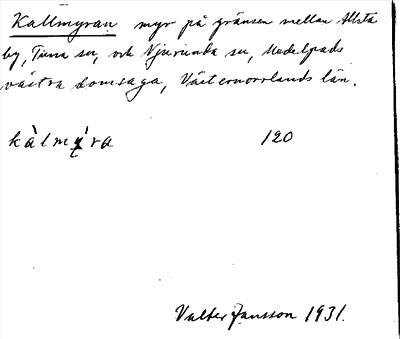 Kallmyran myr på gränsen mellan Allsta
by, Tuna sn, och Njurunda sn, Medelpads
västra domsaga, Västernorrlands län.
kàlmý̀ra 120
Valter Jansson 1931.